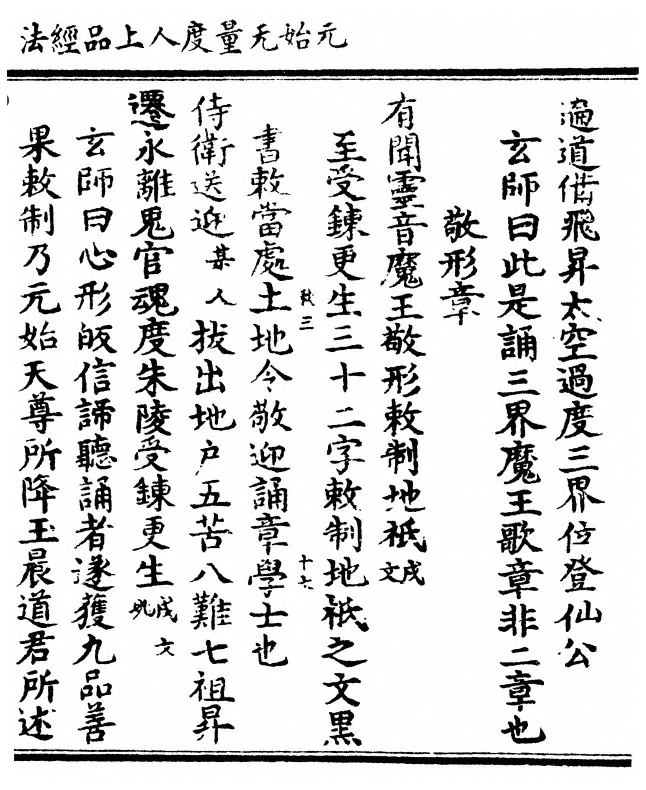 元始无量度人上品經法
遍道備飛昇太空過度三界位登仙公
玄師曰此是誦三界魔王歌章非二章也
敬形章
有聞靈音魔王敬形敕制地祇成文
至受鍊更生三十二字敕制地祇之文黑
書敕當處土地令敬迎誦章學士也
三
十六
侍衛送迎某人拔出地户五苦八難七祖昇
遷永離鬼官魂度朱陵受鍊更生成文
玄師曰心形皈信諦聽誦者遂獲九品善
果敕制乃元始天尊所降玉晨道君所述